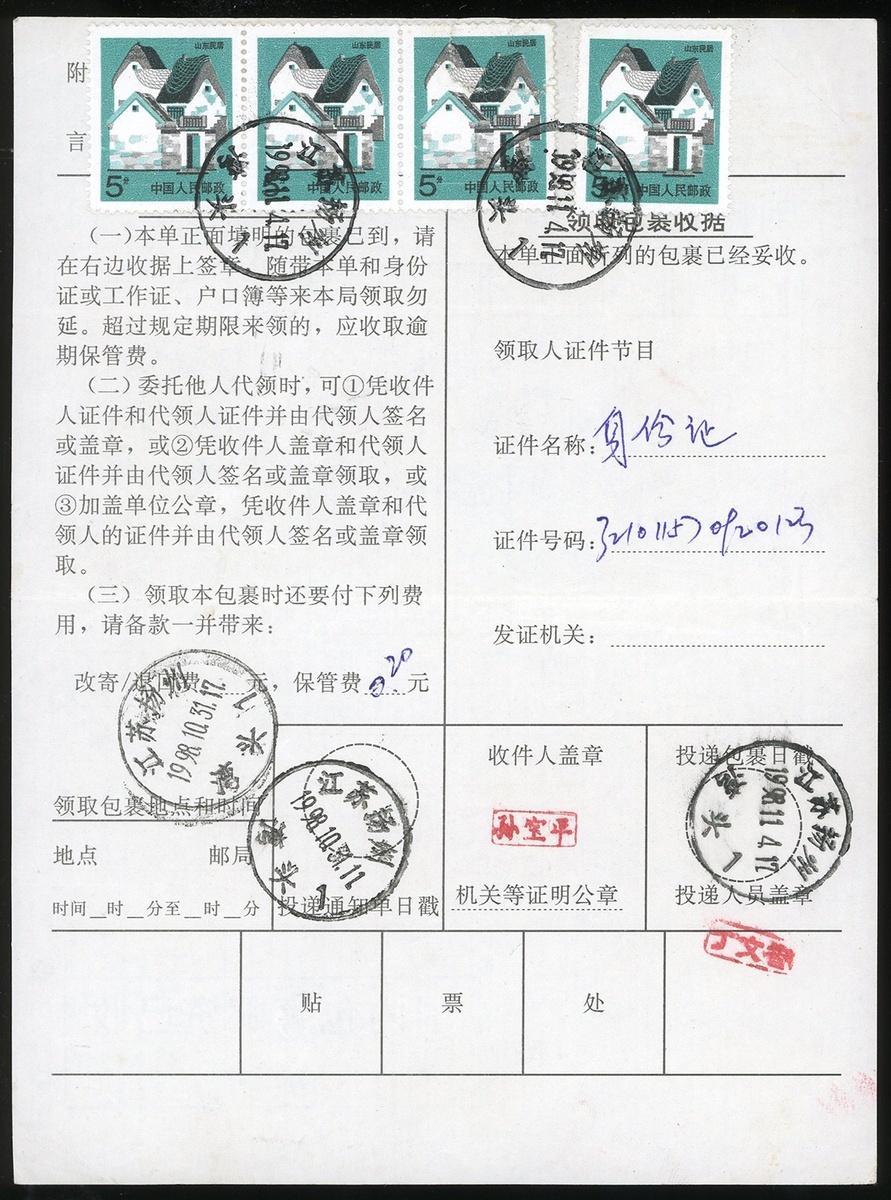 山东民居 山东民居 山东民居 山东民居
附
言
5分 中国人民邮政 中国人民邮政 5分 中国人民邮政 中国人民邮政
江苏扬州 1998.11.4.17 湾头 1
江苏扬州 1998.11.4.17 湾头 1
(一)本单正面填明的包裹已到，请
在右边收据上签章 随带本单和身份
证或工作证、户口簿等来本局领取勿
延。超过规定期限来领的，应收取逾
期保管费。
(二)委托他人代领时，可①凭收件
人证件和代领人证件并由代领人签名
或盖章，或②凭收件人盖章和代领人
证件并由代领人签名或盖章领取，或
③加盖单位公章，凭收件人盖章和代
领人的证件并由代领人签名或盖章领
取。
(三) 领取本包裹时还要付下列费
用，请备款一并带来：
改寄/退回费 元，保管费 0.20 元
领取包裹收据
本单正面所列的包裹已经妥收。
领取人证件节目
证件名称：身份证
证件号码：
发证机关：
江苏扬州 1998.10.31.17 湾头 1
领取包裹地点和时间
地点 邮局
时间__时__分至__时__分
江苏扬州 1998.10.31.17 湾头 1
投递通知单日戳
收件人盖章
孙空平
机关等证明公章
投递包裹日戳
江苏扬州 1998.11.4.17 湾头 1
投递人员盖章
丁文
贴 票 处